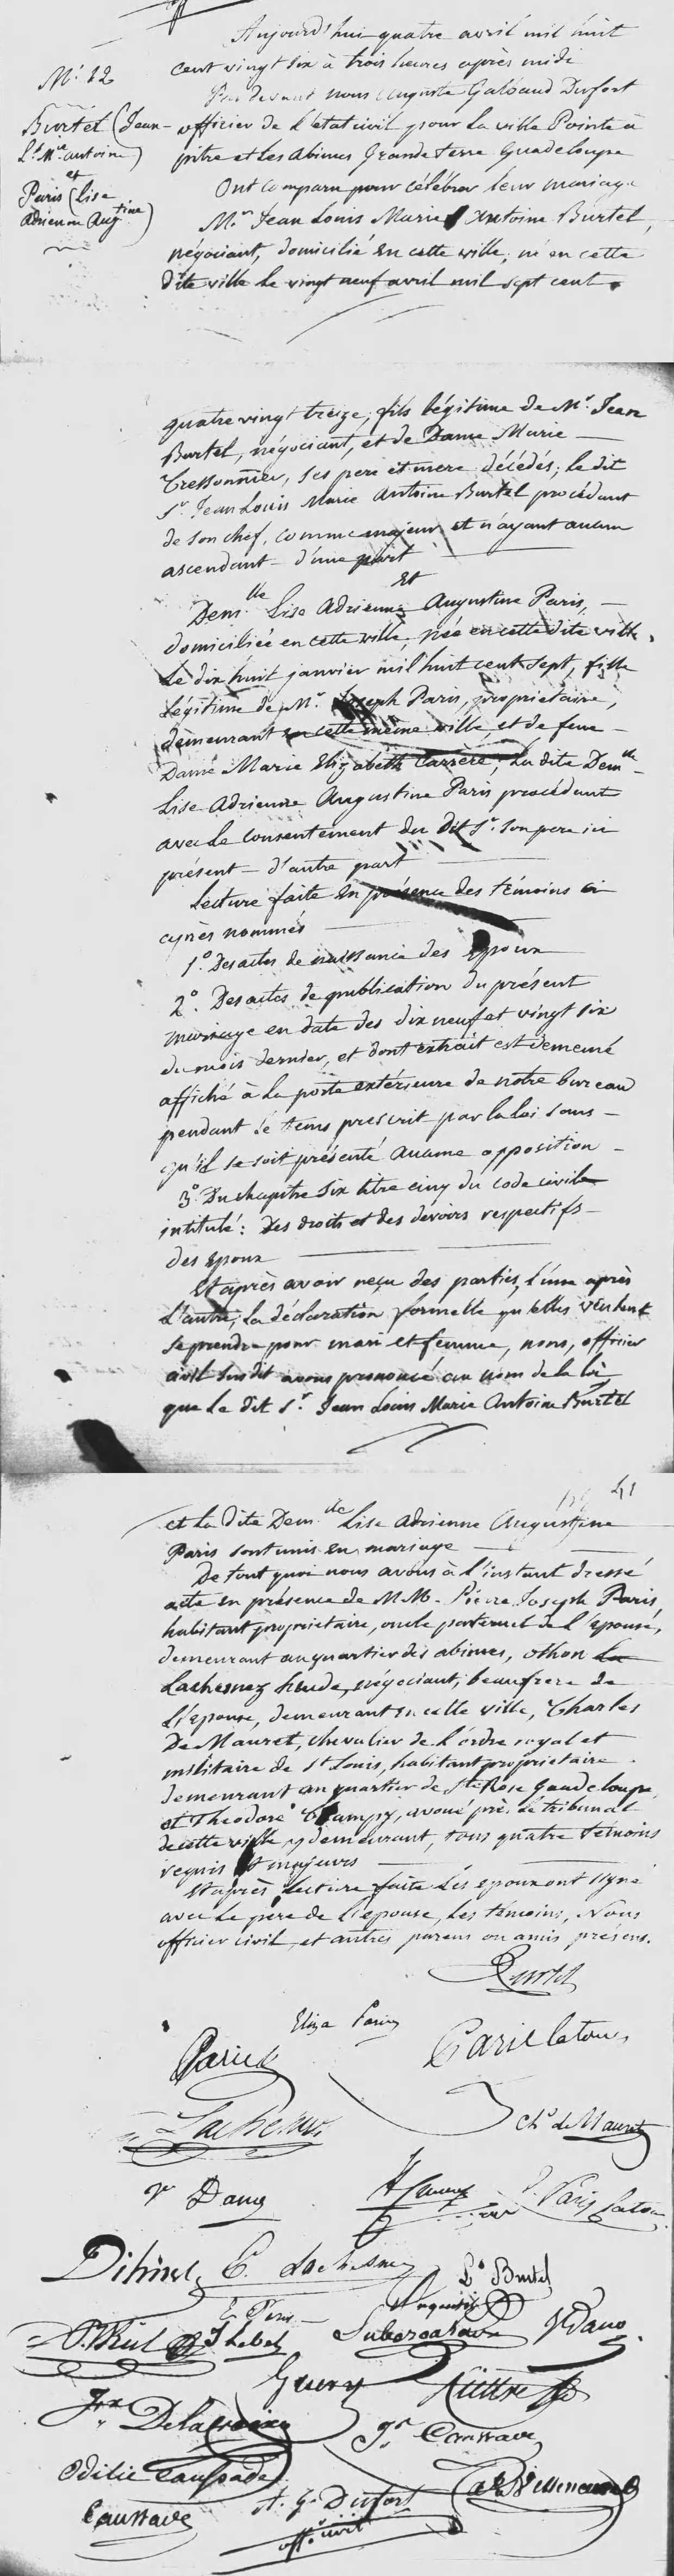 Aujourd'hui quatre avril mil huit
cent vingt six à trois heures après midi
Par devant nous Auguste Galbaud Dufort
officier de l'état civil pour la ville Pointe à
pitre et les abimes Grande terre Guadeloupe
Ont comparu pour célébrer leur mariage
M.r Jean Louis Marie Antoine Burtel,
négociant, domicilié en cette ville, né en cette
dite ville le vingt neuf avril mil sept cent
N.° 22
Burtel (Jean
L.s M.ie antoine)
et
Paris (Lise
Adrienne Augustine)
quatre vingt treize, fils légitime de M.r Jean
Burtel, négociant, et de Dame Marie
Cressonnier, ses pere et mere décédés; le dit
S.r Jean Louis Marie Antoine Burtel procédant
de son chef, comme majeur et n'ayant aucun
ascendant - d'une part
Et
Dem.lle Lise Adrienne Augustine Paris,
domiciliée en cette ville, née en cette dite ville
le dix huit janvier mil huit cent sept, fille
légitime de M.r Joseph Paris, propriétaire,
demeurant en cette même ville, et de feue
Dame Marie Elizabeth Carrère; la dite Dem.lle
Lise Adrienne Augustine Paris procédant
avec le consentement du dit S.r son pere ici
présent - d'autre part
Lecture faite en présence des témoins ci
après nommés
1.° Des actes de naissance des époux
2.° Des actes de publication du présent
mariage en date des dix neuf et vingt six
du mois dernier, et dont extrait est demeuré
affiché à la porte extérieure de notre bureau
pendant le tems prescrit par la loi sans
qu'il se soit présenté aucune opposition
3.° Du chapitre six titre cinq du code civil
intitulé: Des droits et des devoirs respectifs
des époux
Et après avoir reçu des parties, l'une après
l'autre, la déclaration formelle qu'elles veulent
se prendre pour mari et femme, nous, officier
civil susdit avons prononcé au nom de la loi
que le dit S.r Jean Louis Marie Antoine Burtel
41
et la dite Dem.lle Lise Adrienne Augustine
Paris sont unis en mariage
De tout quoi nous avons à l'instant dressé
acte en présence de MM. Pierre Joseph Paris,
habitant propriétaire, oncle paternel de l'épouse,
demeurant au quartier des abimes, othon
Lachesnez heude, négociant, beaufrere de
l'épouse, demeurant en cette ville, Charles
De Mauret, chevalier de l'ordre royal et
militaire de St Louis, habitant propriétaire
demeurant au quartier de Ste Rose Guadeloupe
et Théodore Champy, avoué près le tribunal
de cette ville y demeurant, tous quatre témoins
requis et majeurs
Et après lecture faite les époux ont signé
avec le père de l'épouse, les témoins, Nous
officier civil, et autres parens ou amis présens.
Burtel
Eliza Paris
Paris Latour
Ch.s de Mauret
Dany
P. Paris Latour
C. Lachesnez
L.s Burtel
Thebel
Guery
J.n Delacroix
J.n Caussade
Odilie Caussade
Caussade
A. G. Dufort
off. civil